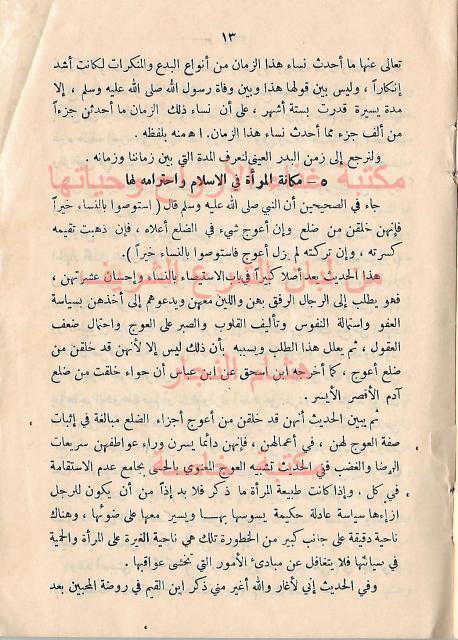 ١٣
تعالى عنها ما أحدث نساء هذا الزمان من أنواع البدع والمنكرات لكانت أشد
إنكاراً ، وليس بين قولها هذا وبين وفاة رسول الله صلى الله عليه وسلم ، إلا
مدة يسيرة قدرت بستة أشهر ، على أن نساء ذلك الزمان ما أحدثن جزءاً
من ألف جزء مما أحدث نساء هذا الزمان . اه منه بلفظه .
ولنرجع إلى زمن البدر العيني لنعرف المدة التي بين زماننا وزمانه .
مكتبة غذاء الأرواح وحياتها
٥ – مكانة المرأة في الاسلام واحترامه لها
جاء في الصحيحين أن النبي صلى الله عليه وسلم قال ( استوصوا بالنساء خيراً
فإنهن خلقن من ضلع وإن أعوج شيء في الضلع أعلاه ، فإن ذهبت تقيمه
كسرته ، وإن تركته لم يزل أعوج فاستوصوا بالنساء خيراً ) .
هذا الحديث يعد أصلا كبيراً في باب الاستيصاء بالنساء وإحسان عشرتهن ،
فهو يطلب إلى الرجال الرفق بهن واللين معهن ويدعوهم إلى أخذهن بسياسة
العفو واستمالة النفوس وتأليف القلوب والصبر على العوج واحتمال ضعف
العقول ، ثم يعلل هذا الطلب ويسببه بأن ذلك ليس إلا لأنهن قد خلقن من
ضلع أعوج ، كما أخرجه ابن اسحق عن ابن عباس أن حواء خلقت من ضلع
هشام النجار
آدم الأقصر الأيسر .
ثم يبين الحديث أنهن قد خلقن من أعوج أجزاء الضلع مبالغة في إثبات
صفة العوج لهن ، في أعمالهن ، فإنهن دائما يسرن وراء عواطفهن سريعات
الرضا والغضب ففي الحديث تشبيه العوج المعنوي بالحسي بجامع عدم الاستقامة
مكتبة خاصة
في كل . وإذا كانت طبيعة المرأة ما ذكر فلا بد إذاً من أن يكون للرجل
إزاءها سياسة عادلة حكيمة يسوسها بها ويسير معها على ضوئها ، وهناك
ناحية دقيقة على جانب كبير من الخطورة تلك هي ناحية الغيرة على المرأة والحمية
في صيانتها فلا يتغافل عن مبادئ الأمور التي تخشى عواقبها .
وفي الحديث إني لأغار والله أغير مني ذكر ابن القيم في روضة المحبين بعد